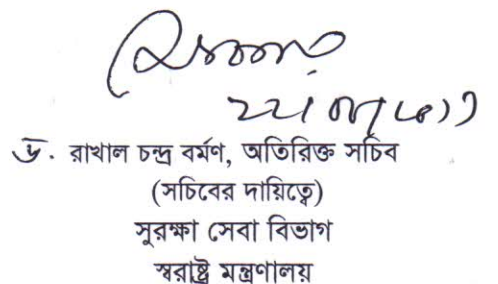 ড. রাখাল চন্দ্র বর্মণ, অতিরিক্ত সচিব
(সচিবের দায়িত্বে)
সুরক্ষা সেবা বিভাগ
স্বরাষ্ট্র মন্ত্রণালয়